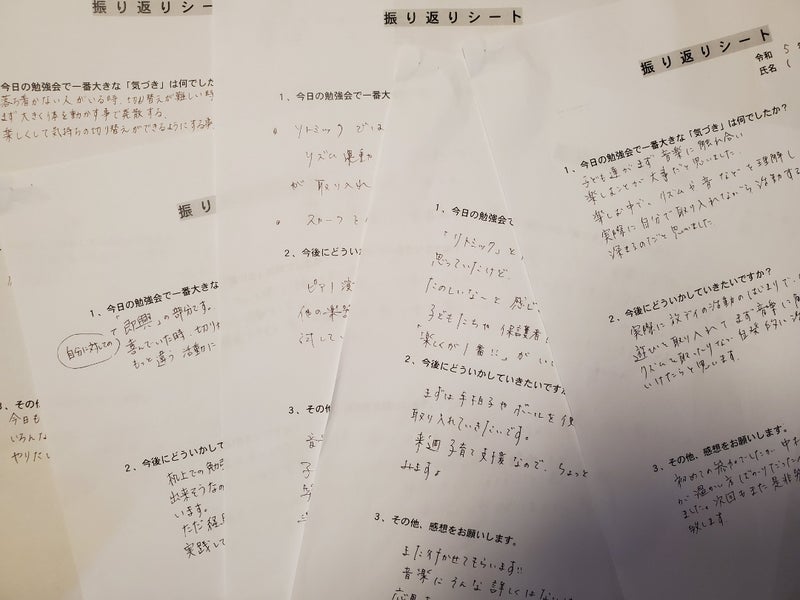 振り返りシー
今日の勉強会で一番大きな「気づき」は何でした
落ち着かない人がいる時、切り替えが難しい時
まず大きく体を動かす事で発散する。
楽しくして気持ちの切り替えができるようにする事
3、その他
今日も
いろんな
やりたし
振り返
1、今日の勉強会で一番大きな
「即興」の部分です。
自分に対しての
喜んでいた時、切り
もっと違う活動に
2、今後にどういかして
机上での勉
出来そうなの
います。
ただ経
実践して
1、今日の勉強会で一番大
リトミックでは
リズム運動
が取り入れ
スカーフを
2、今後にどういか
ピアノ演
他の楽
対して
3、その他
振り返りシート
1、今日の勉強会で
「リトミック」と
思っていたけど、
たのしいな〜と感じ
子どもたちや保護者
「楽しくが1番!!」が
2、今後にどういかしていきたいです
まずは手拍子やボールを使
取り入れていきたいです。
来週子育て支援なので、ちょっと
みます。
3、その他、感想をお願いします。
また行かせてもらいます!!
音楽にそんな詳しくはない
振り返りシート
令和 5
氏名 (
1、今日の勉強会で一番大きな「気づき」は何でしたか?
子ども達がまず音楽に触れ合い
楽しむことが大事だと思いました。
楽しむ中で、リズムや音などを理解し
実際に自分で取り入れながら活動する
深まるのだと思いました。
2、今後にどういかしていきたいですか?
実際に放デイの活動のはじまりで、
遊びを取り入れてまず音楽に
リズムを取ったりなど自発的な活
いけたらと思います。
3、その他、感想をお願いします。
初めての参加でしたが
が温かい方ばかりだった
ました。次回もまた是非
致します